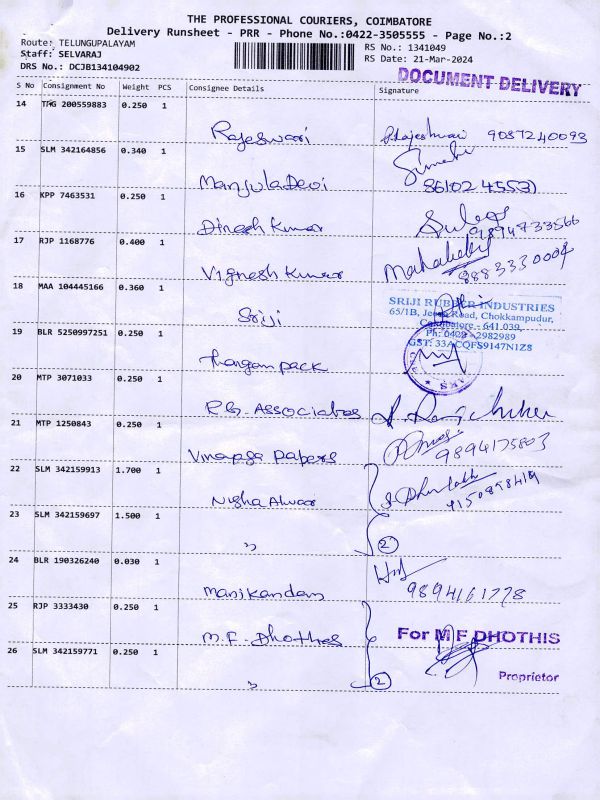 THE PROFESSIONAL COURIERS, COIMBATORE
Delivery Runsheet - PRR - Phone No.:0422-3505555 - Page No.:2
Route: TELUNGUPALAYAM RS No.: 1341049
Staff: SELVARAJ RS Date: 21-Mar-2024
DRS No.: DCJB134104902
DOCUMENT DELIVERY
S No Consignment No Weight PCS Consignee Details Signature
14 TMG 200559883 0.250 1
Rajeswari 9087240093
15 SLM 342164856 0.340 1
Manjula Devi
16 KPP 7463531 0.250 1
Dinesh Kumar 9894733566
17 RJP 1168776 0.400 1
Vignesh Kumar 9883330004
18 MAA 104445166 0.360 1
Sriji
SRIJI RUBBER INDUSTRIES
65/1B, Road, Chokkampudur,
Coimbatore - 641 039.
Ph: 0422 - 2982989
GST: 33ACQFS9147N1Z8
19 BLR 5250997251 0.250 1
Thangam pack
20 MTP 3071033 0.250 1
Associates
21 MTP 1250843 0.250 1
Papers 9894175803
22 SLM 342159913 1.700 1
Nigha Alwar
23 SLM 342159697 1.500 1
" 2
24 BLR 190326240 0.030 1
Manikandan 9894161778
25 RJP 3333430 0.250 1
M.F. Dhothes For M F DHOTHIS
26 SLM 342159771 0.250 1
Proprietor
" 2